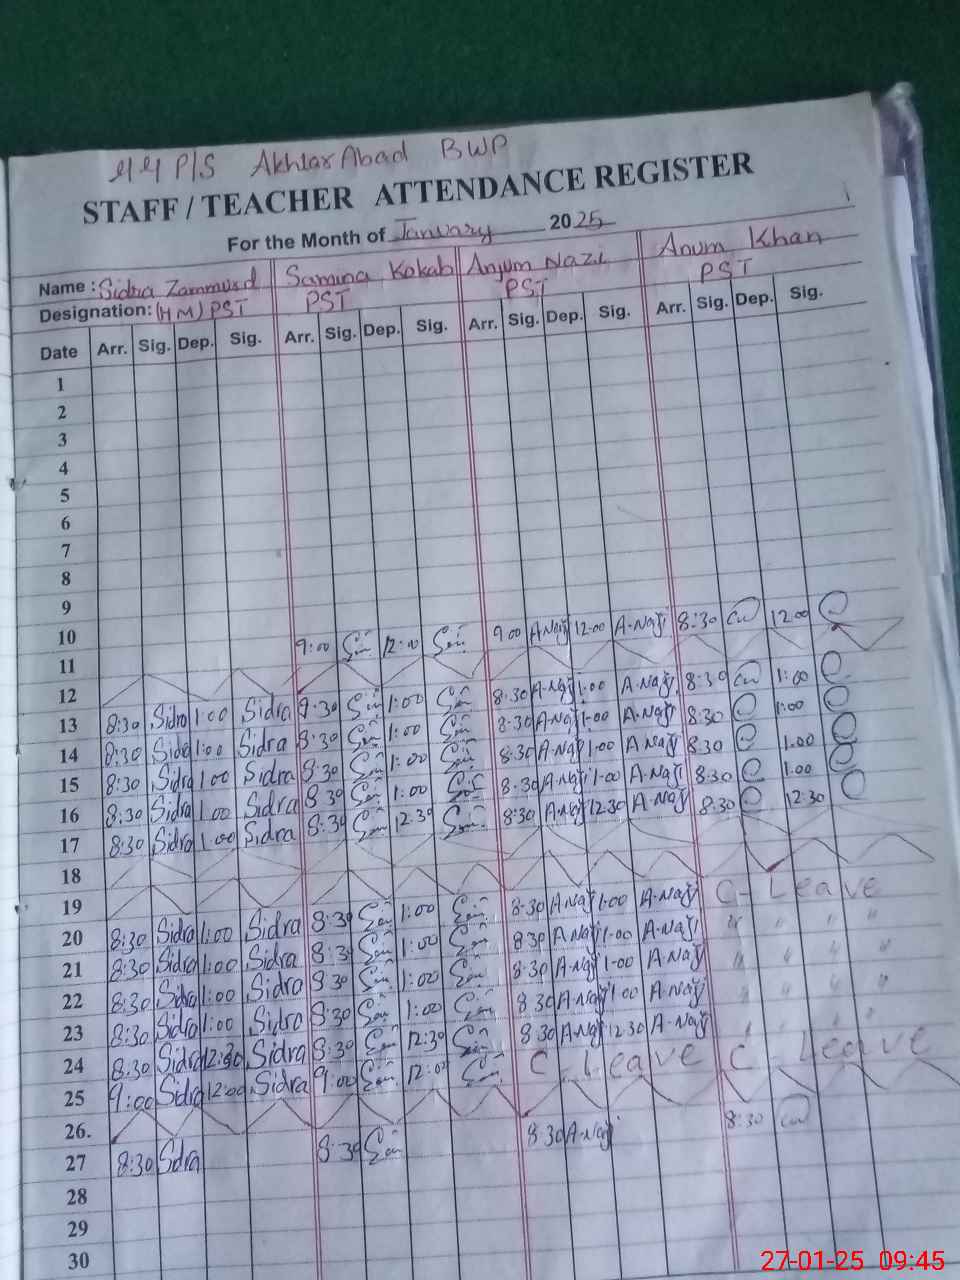 P/S Akhtar Abad BWP
STAFF / TEACHER ATTENDANCE REGISTER
For the Month of January 2025
Name : Sidra Zammurd Samina Kokab Anjum Nazi Anum Khan
Designation: (HM) PST PST PST PST
Date Arr. Sig. Dep. Sig. Arr. Sig. Dep. Sig. Arr. Sig. Dep. Sig. Arr. Sig. Dep. Sig.
1
2
3
4
5
6
7
8
9
10 9:00 12:00 9:00 A.Naji 12:00 A.Naji 8:30 12:00
11
12
13 8:30 Sidra 1:00 Sidra 1:00 8:30 A.Naji 1:00 A.Naji 8:30 1:00
14 8:30 Sidra 1:00 Sidra 8:30 1:00 8:30 A.Naji 1:00 A.Naji 8:30 1:00
15 8:30 Sidra 1:00 Sidra 8:30 1:00 8:30 A.Naji 1:00 A.Naji 8:30 1:00
16 8:30 Sidra 1:00 Sidra 8:30 1:00 8:30 A.Naji 1:00 A.Naji 8:30 1:00
17 8:30 Sidra 1:00 Sidra 8:30 12:30 8:30 A.Naji 12:30 A.Naji 8:30 12:30
18
19
20 8:30 Sidra 1:00 Sidra 8:30 1:00 8:30 A.Naji 1:00 A.Naji C-Leave
21 8:30 Sidra 1:00 Sidra 8:30 1:00 8:30 A.Naji 1:00 A.Naji " " " "
22 8:30 Sidra 1:00 Sidra 8:30 1:00 8:30 A.Naji 1:00 A.Naji " " " "
23 8:30 Sidra 1:00 Sidra 8:30 1:00 8:30 A.Naji 1:00 A.Naji " " " "
24 8:30 Sidra 12:30 Sidra 8:30 12:30 8:30 A.Naji 12:30 A.Naji
25 9:00 Sidra 12:00 Sidra 9:00 12:00 C-Leave C-Leave
26.
27 8:30 Sidra 8:30 8:30 A.Naji 8:30
28
29
30
27-01-25 09:45